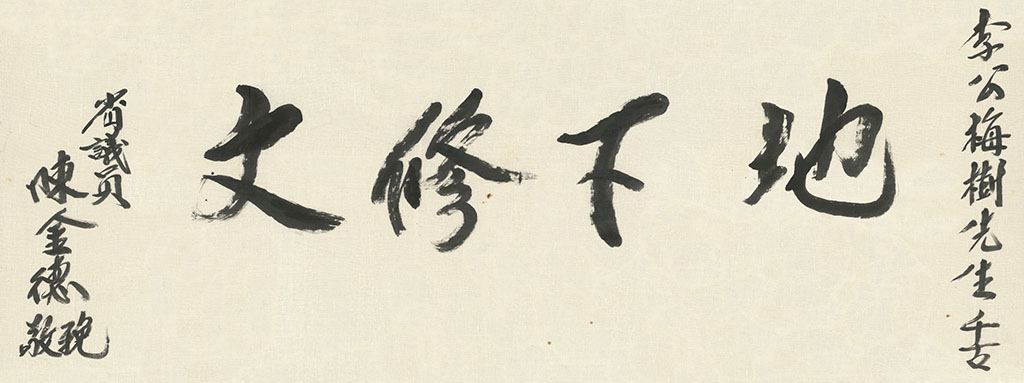 李公梅樹先生千古
地下修文
省議員
陳金德敬輓